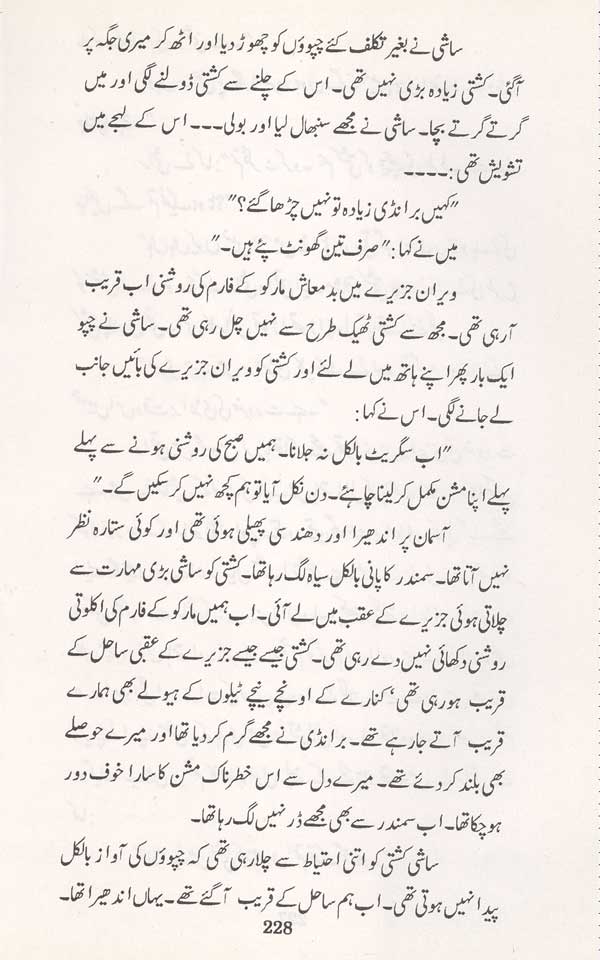 ساشی نے بغیر تکلف کئے چپوؤں کو چھوڑ دیا اور اٹھ کر میری جگہ پر
آگئی۔ کشتی زیادہ بڑی نہیں تھی۔ اس کے چلنے سے کشتی ڈولنے لگی اور میں
گرتے گرتے بچا۔ ساشی نے مجھے سنبھال لیا اور بولی۔۔۔ اس کے لہجے میں
تشویش تھی :۔۔۔۔
"کہیں برانڈی زیادہ تو نہیں چڑھا گئے؟"
میں نے کہا : "صرف تین گھونٹ پئے ہیں۔"
ویران جزیرے میں بدمعاش مارکو کے فارم کی روشنی اب قریب
آرہی تھی۔ مجھ سے کشتی ٹھیک طرح سے نہیں چل رہی تھی۔ ساشی نے چپو
ایک بار پھر اپنے ہاتھ میں لے لئے اور کشتی کو ویران جزیرے کی بائیں جانب
لے جانے لگی۔ اس نے کہا :
"اب سگریٹ بالکل نہ جلانا۔ ہمیں صبح کی روشنی ہونے سے پہلے
پہلے اپنا مشن مکمل کر لینا چاہئے۔ دن نکل آیا تو ہم کچھ نہیں کر سکیں گے۔"
آسمان پر اندھیرا اور دھند سی پھیلی ہوئی تھی اور کوئی ستارہ نظر
نہیں آتا تھا۔ سمندر کا پانی بالکل سیاہ لگ رہا تھا۔ کشتی کو ساشی بڑی مہارت سے
چلاتی ہوئی جزیرے کے عقب میں لے آئی۔ اب ہمیں مارکو کے فارم کی اکلوتی
روشنی دکھائی نہیں دے رہی تھی۔ کشتی جیسے جیسے جزیرے کے عقبی ساحل کے
قریب ہو رہی تھی' کنارے کے اونچے نیچے ٹیلوں کے ہیولے بھی ہمارے
قریب آتے جا رہے تھے۔ برانڈی نے مجھے گرم کر دیا تھا اور میرے حوصلے
بھی بلند کر دئے تھے۔ میرے دل سے اس خطرناک مشن کا سارا خوف دور
ہو چکا تھا۔ اب سمندر سے بھی مجھے ڈر نہیں لگ رہا تھا۔
ساشی کشتی کو اتنی احتیاط سے چلا رہی تھی کہ چپوؤں کی آواز بالکل
پیدا نہیں ہوتی تھی۔ اب ہم ساحل کے قریب آگئے تھے۔ یہاں اندھیرا تھا۔
228